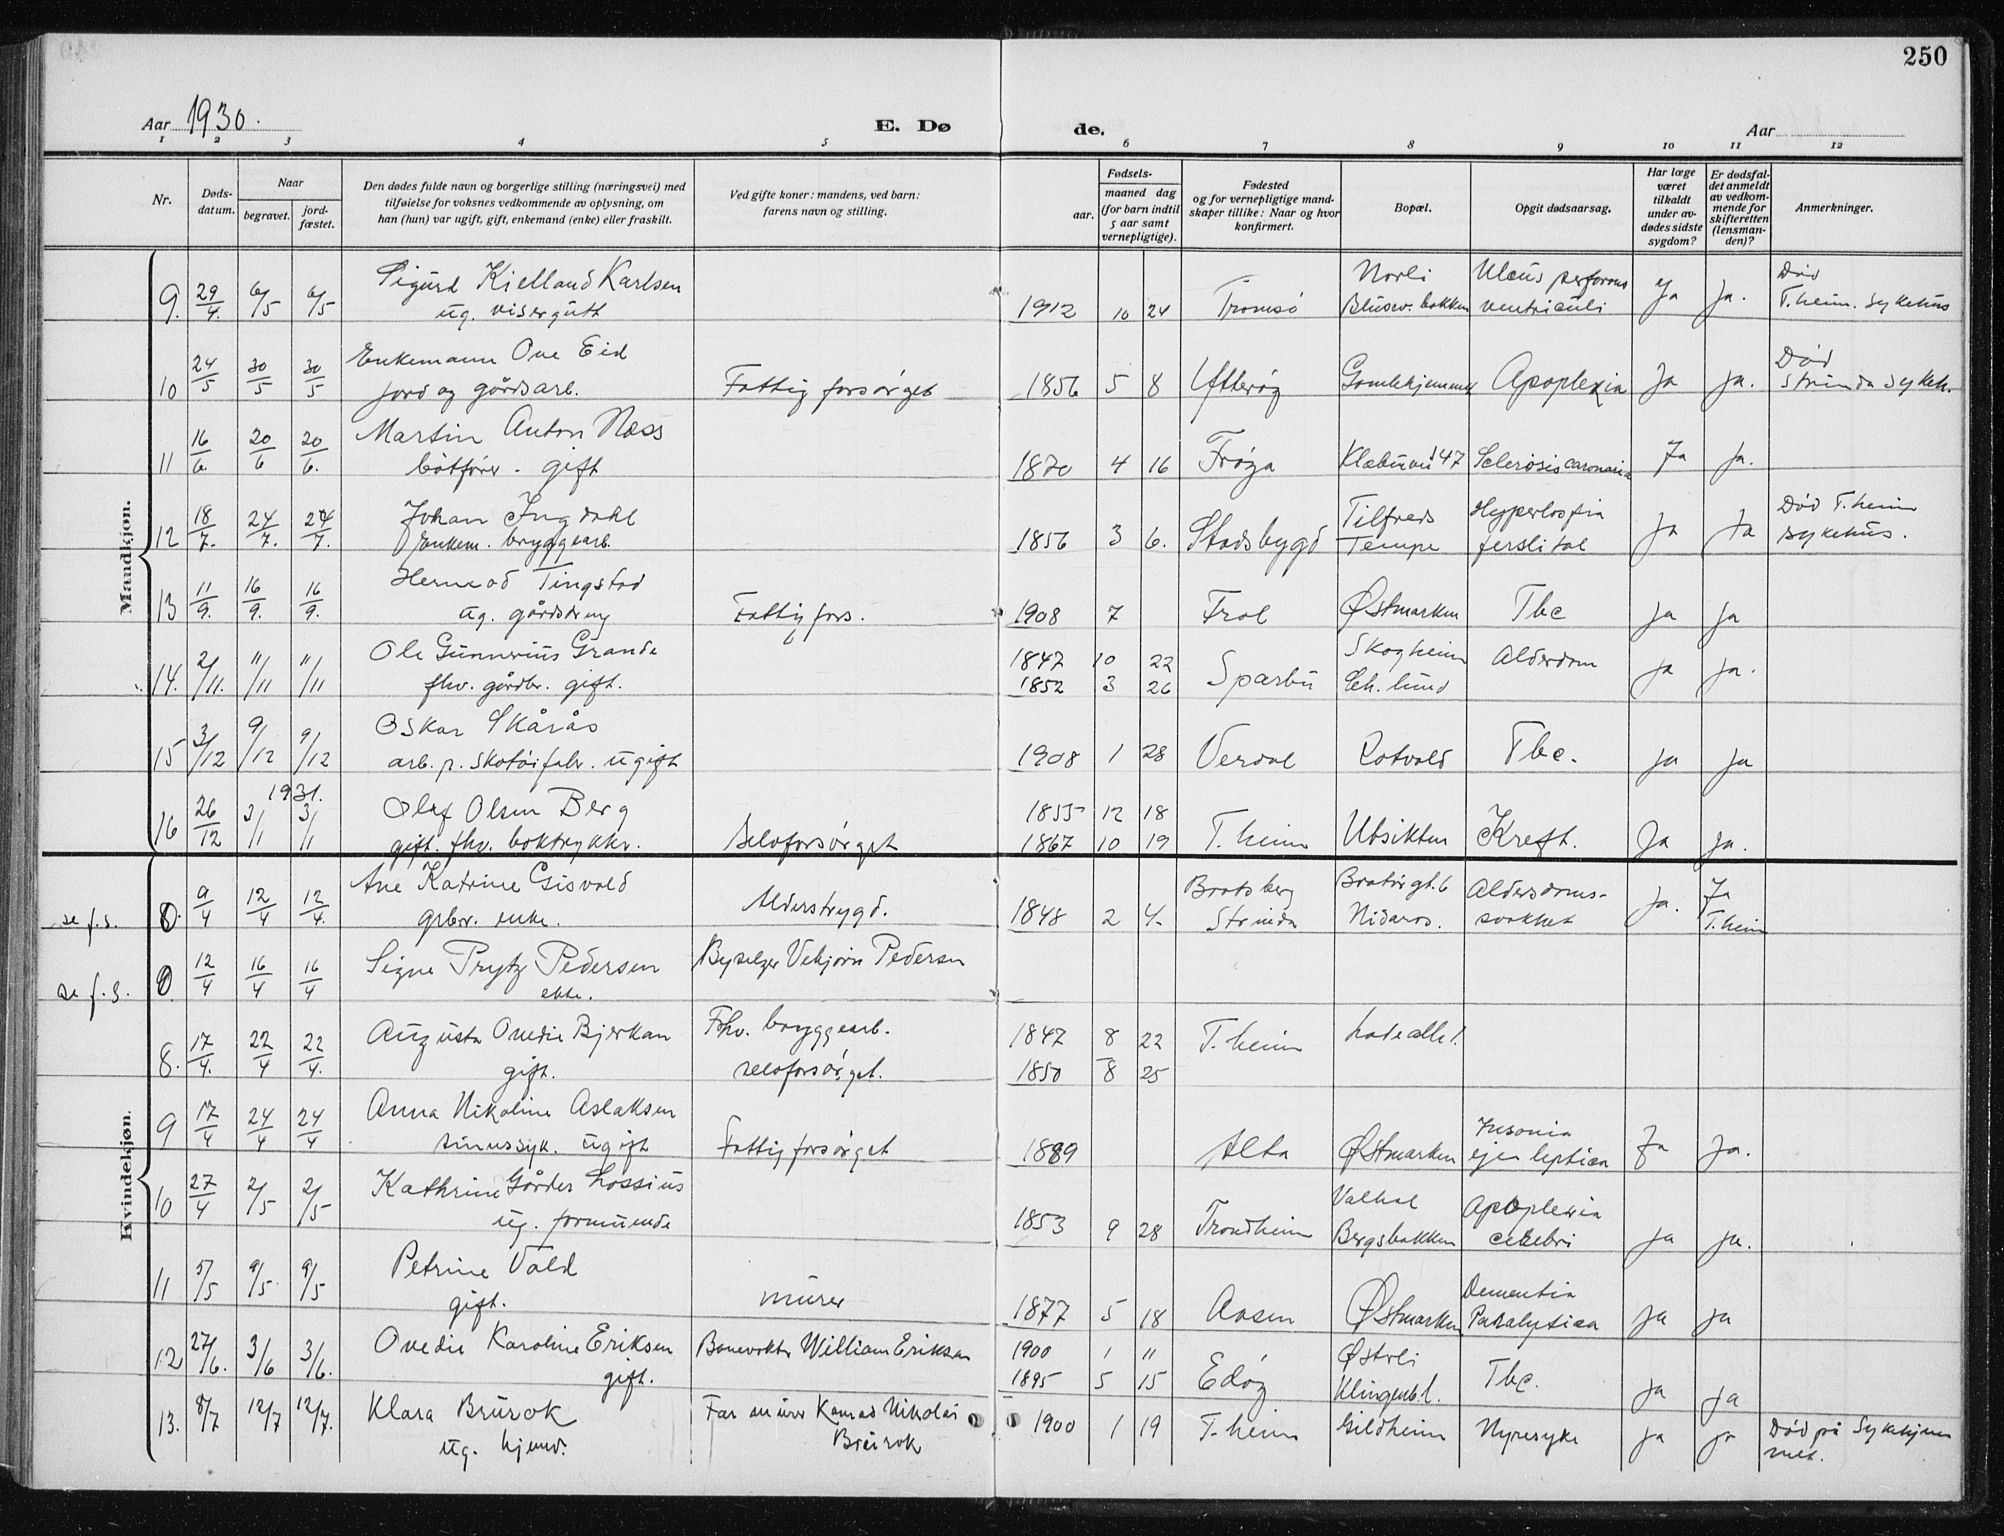 250
Aar 1930.
E. Dø
de.
Aar
1 2 3 4 5 6 7 8 9 10 11 12
Nr.
Døds-
datum.
Naar
begravet.
jord-
fæstet.
Den dødes fulde navn og borgerlige stilling (næringsvei) med
tilføielse for voksnes vedkommende av oplysning, om
han (hun) var ugift, gift, enkemand (enke) eller fraskilt.
Ved gifte koner: mandens, ved barn:
farens navn og stilling.
Fødsels-
aar.
maaned dag
(for barn indtil
5 aar samt
vernepligtige).
Fødested
og for vernepligtige mand-
skaper tillike: Naar og hvor
konfirmert.
Bopæl.
Opgit dødsaarsag.
Har læge
været
tilkaldt
under av-
dødes sidste
sygdom?
Er dødsfal-
det anmeldt
av vedkom-
mende for
skifteretten
(lensman-
den)?
Anmerkninger.
Mandkjøn.
Sigurd Kielland Karlsen Norli Ulcus perforans Død
9. 29/4. 6/5 6/5 ug. visergutt 1912 10 24 Tromsö ventriculi Ja Ja. T.heim. sykehus
Enkemann Ove Eid Død
10 24/5 30/5 30/5 jord og gårdsarb. Fattigforsørget 1856 5 8 Ytterøy Gamlehjemmet Apoplexia Ja Ja. Strinda sykeh.
Martin Anton Næss
11 16/6. 20/6 20/6. båtfører. gift 1870 4 16 Frøya Klæbuv. 47 Sclerosis coronaria Ja Ja.
Johan Ingdahl Tilfreds Død T.heim
12 18/7. 24/7. 24/7. Enkem. bryggearb. 1856 3 6. Stadsbygd Tempe Ja Ja sykehus.
Hermod Tingstad
13 11/9. 16/9. 16/9. ug. gårdsdreng Fattigfors. 1908 7 Frol Østmarken Tbc Ja Ja
Ole Gunnerius Grande 1847 10 22 Skogheim
14. 2/11. 11/11 11/11 fhv. gårdbr. gift. 1852 3 26 Sparbu lund Alderdom Ja Ja.
Oskar Skårås
15 3/12 9/12 9/12 arb. p. skotøifabr. ugift 1908 1 28 Verdal Rotvold Tbc. Ja Ja
1931.
Olaf Olsen Berg 1855 12 18
16 26/12 3/1 3/1 gift. fhv. boktrykker. Selvforsørget 1867 10 19 T.heim Utsikten Kreft. Ja Ja.
Kvindekjøn.
Ane Katrine Gisvold Bratsberg Bratørgt. 6 Aldersdoms- Ja
se f.s. 0. 9/4 12/4 12/4. grbr. enke. Alderstrygd. 1848 2 4. Strinda Nidaros. svakhet Ja. T.heim
Signe Prytz Pedersen Pedersen
se f.s. 0. 12/4 16/4 16/4 ekte.
Augusta Ovedie Bjerkan Fhv. bryggearb. 1847 8 22 T.heim Lade alle 1.
8. 17/4. 22/4 22/4. gift. selvforsørget. 1850 8 25
Anna Nikoline Aslaksen
9 17/4 24/4 24/4 sinnssyk. ugift Fattigforsørget 1889 Alta Østmarken Ja Ja.
Kathrine Gørder Lossius Valhal Apoplexia
10 27/4 2/5 2/5 ug. formuende 1853 9 28 Trondheim Bergsbakken cerebri Ja Ja.
Petrine Vold Dementia
11 5/5 9/5 9/5 gift. murer 1877 5 18 Aasen Østmarken Paralytica Ja Ja
Ovedie Karoline Eriksen Banevokter William Eriksen 1900 1 11 Østvli
12 27/6. 3/6 3/6. gift. 1895 5 15 Edøy Klingenb. Tbc. Ja Ja
Klara Brurok Far murer Konrad Nikolai
13. 8/7 12/7 12/7. ug. hjemv. Brurok 1900 1 19 T.heim Gildheim Nyresyke Ja Ja Død på Sykehjem
met.